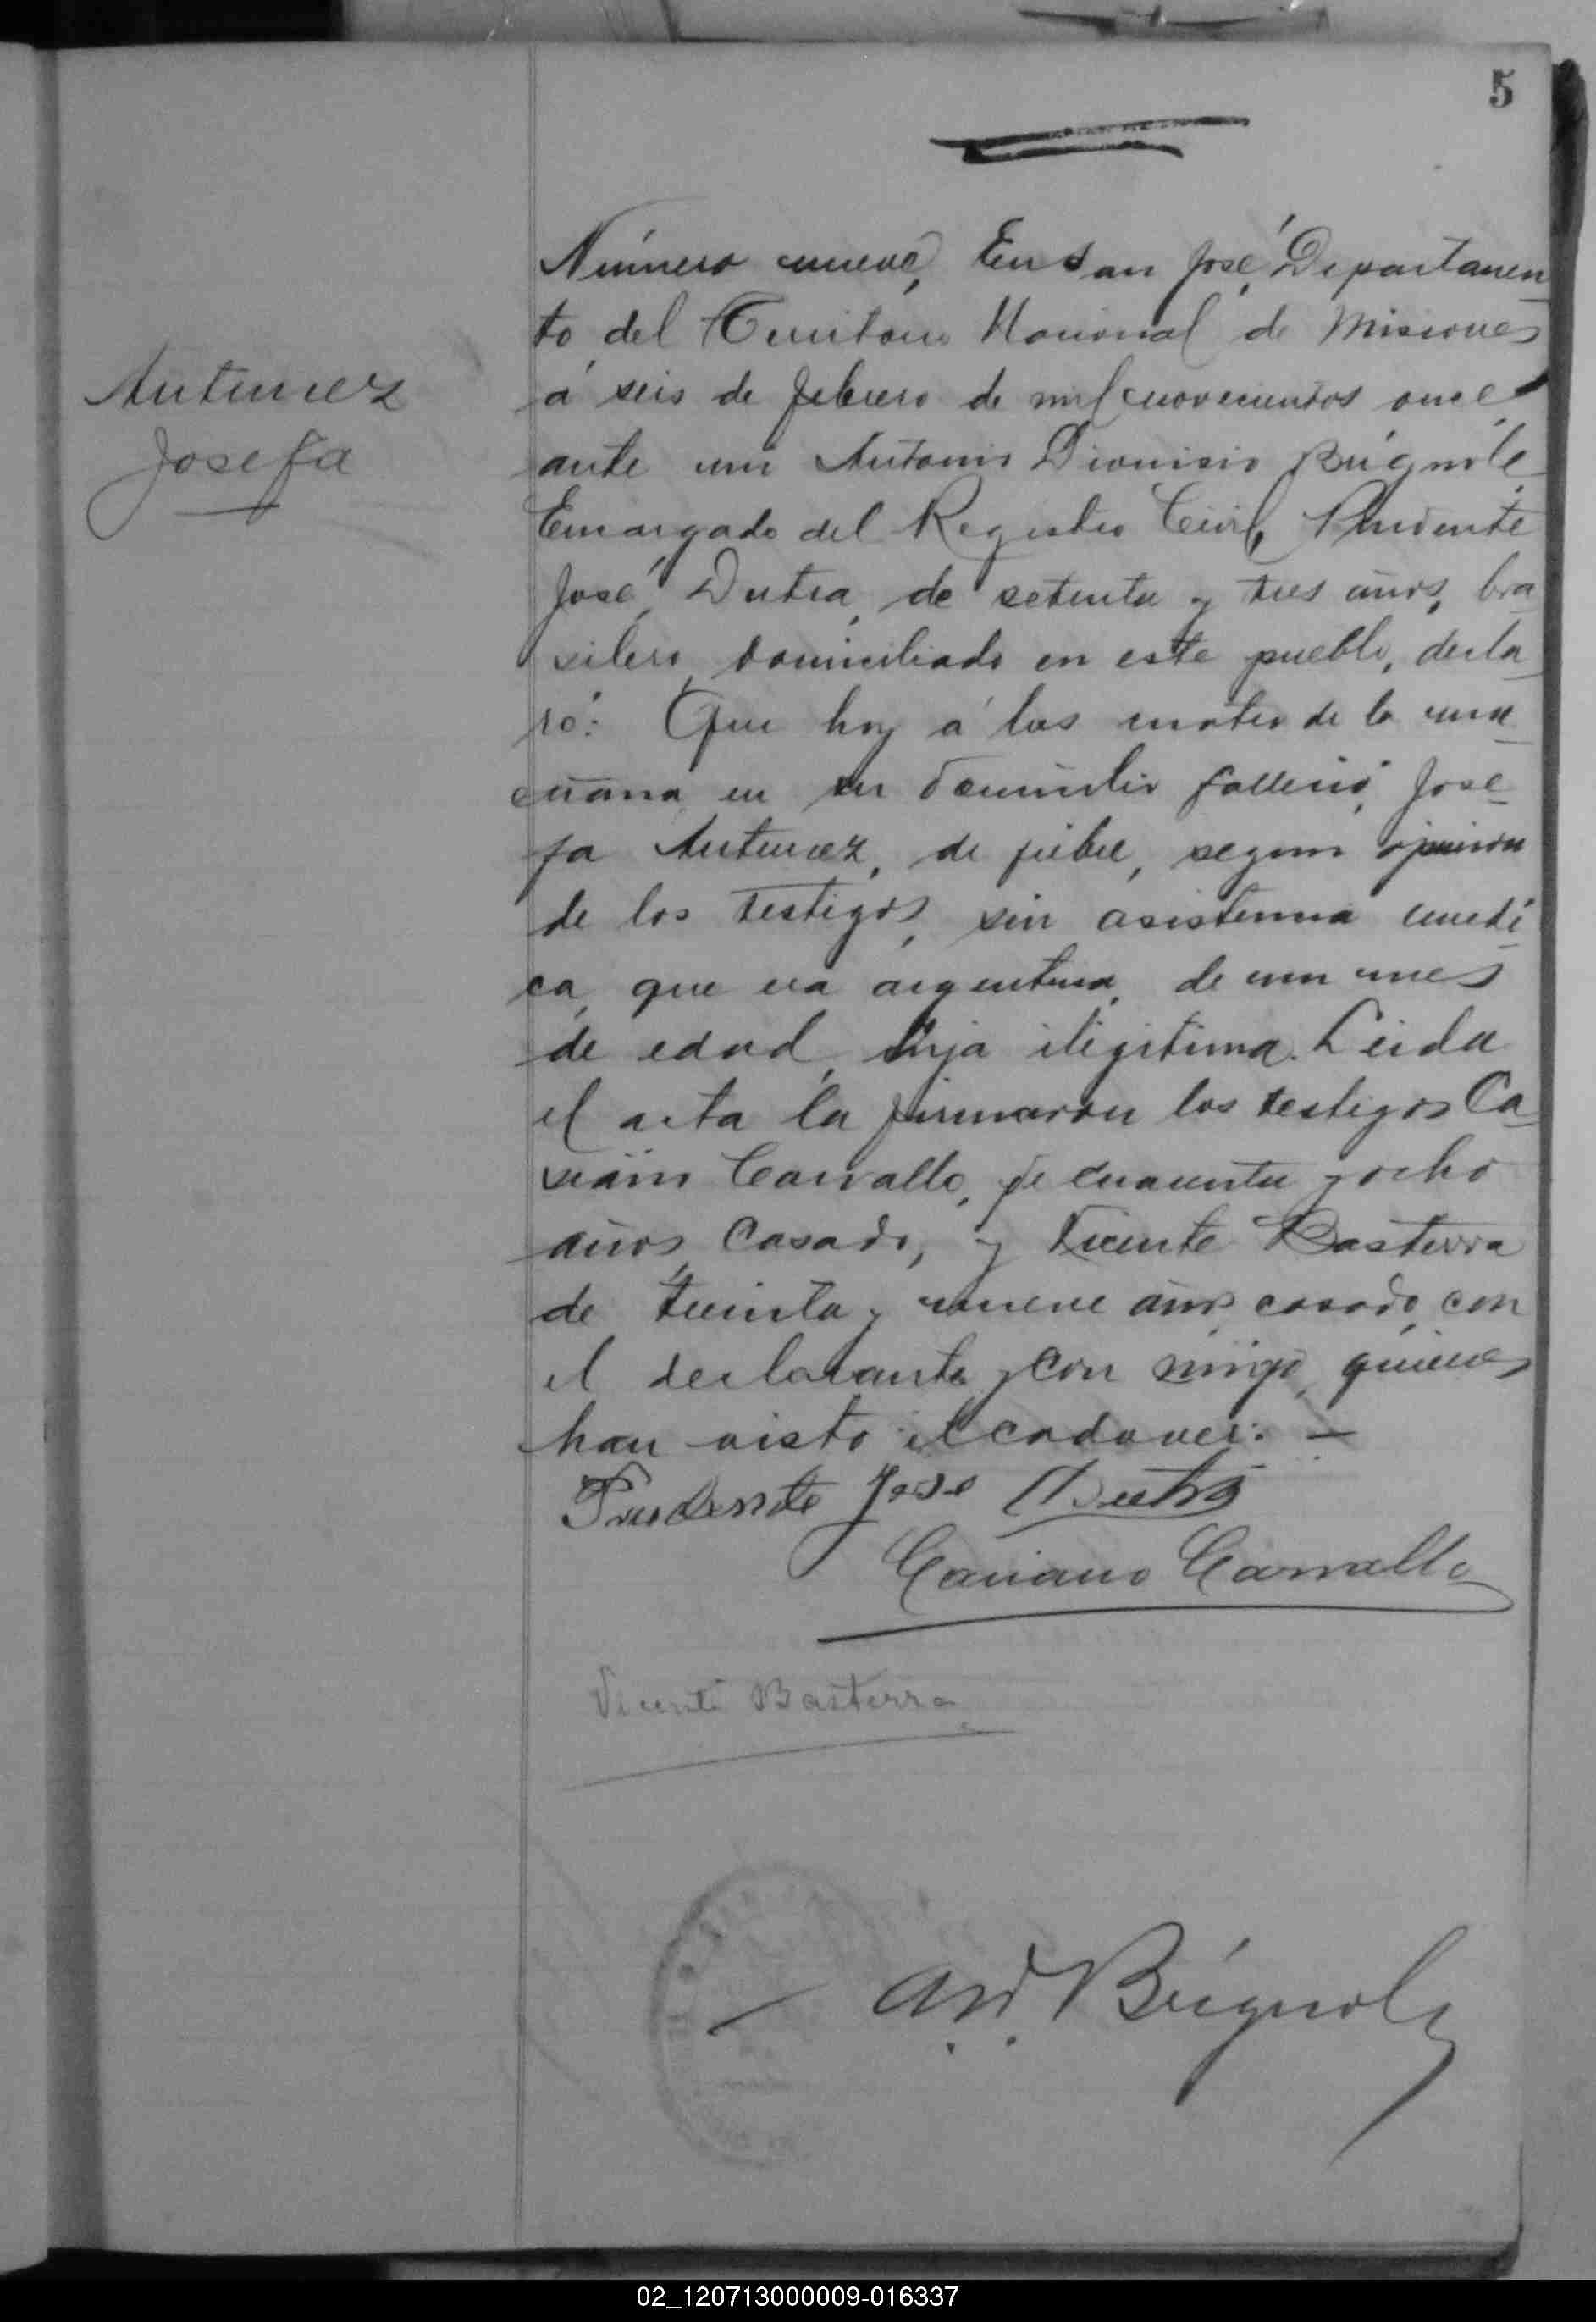 5
Antunez
Josefa
Número nueve, En San José, Departamen
to del Territorio Nacional de Misiones
á seis de febrero de mil novecientos once
ante mi Antonio Dionisio Brignole
Encargado del Registro Civil, Prudente
José Dutra, de setenta y tres años, bra
silero, domiciliado en este pueblo, decla
ró: Que hoy á las cuatro de la ma
ñana en su domicilio falleció Jose
fa Antunez, de fiebre, segun opinion
de los testigos, sin asistencia medi
ca, que era argentina, de un mes
de edad, hija ilegitima. Leida
el acta la firmaron los testigos Ca
siano Carvallo, de cuarenta y ocho
años, casado, y Vicente Basterra
de treinta y nueve años casado, con
el declarante y con migo, quienes
han visto el cadaver. —
Prudente Jose Dutra
Casiano Carvallo
Vicente Basterra
A. D. Brignole
02_120713000009-016337